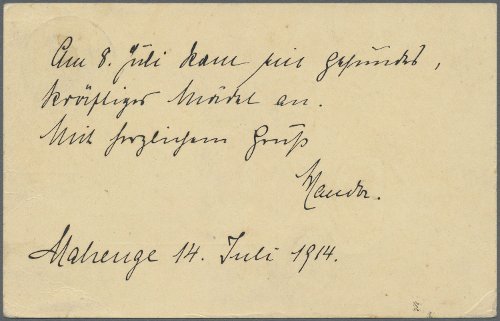 Am 8. Juli kam ein gesundes,
kräftiges Mädel an.
Mit herzlichem Gruß
Mahenge 14. Juli 1914.